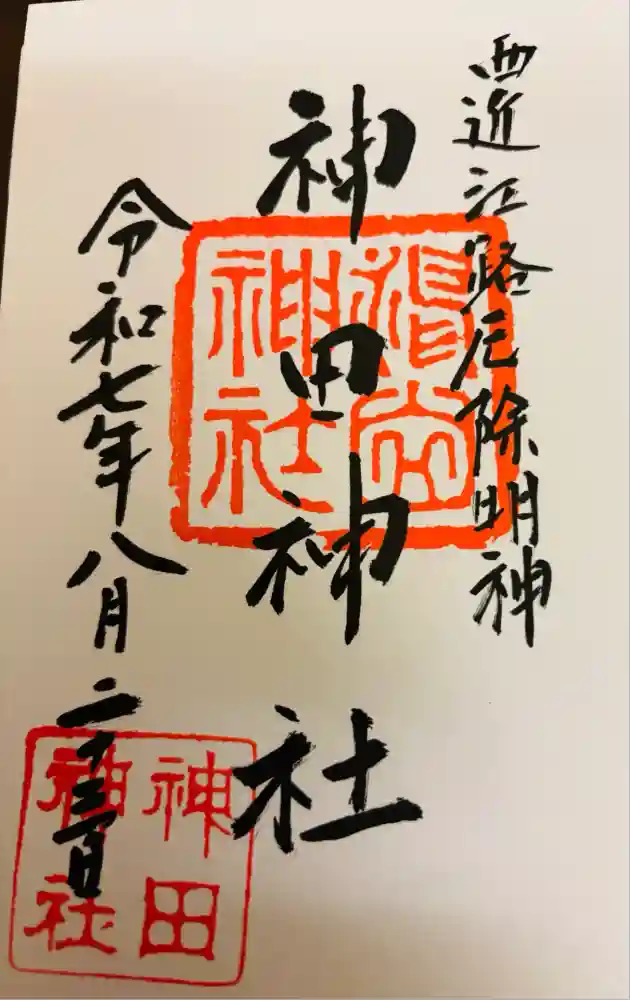 西近江路厄除明神
神田神社
令和七年八月二十三日
神田
神社